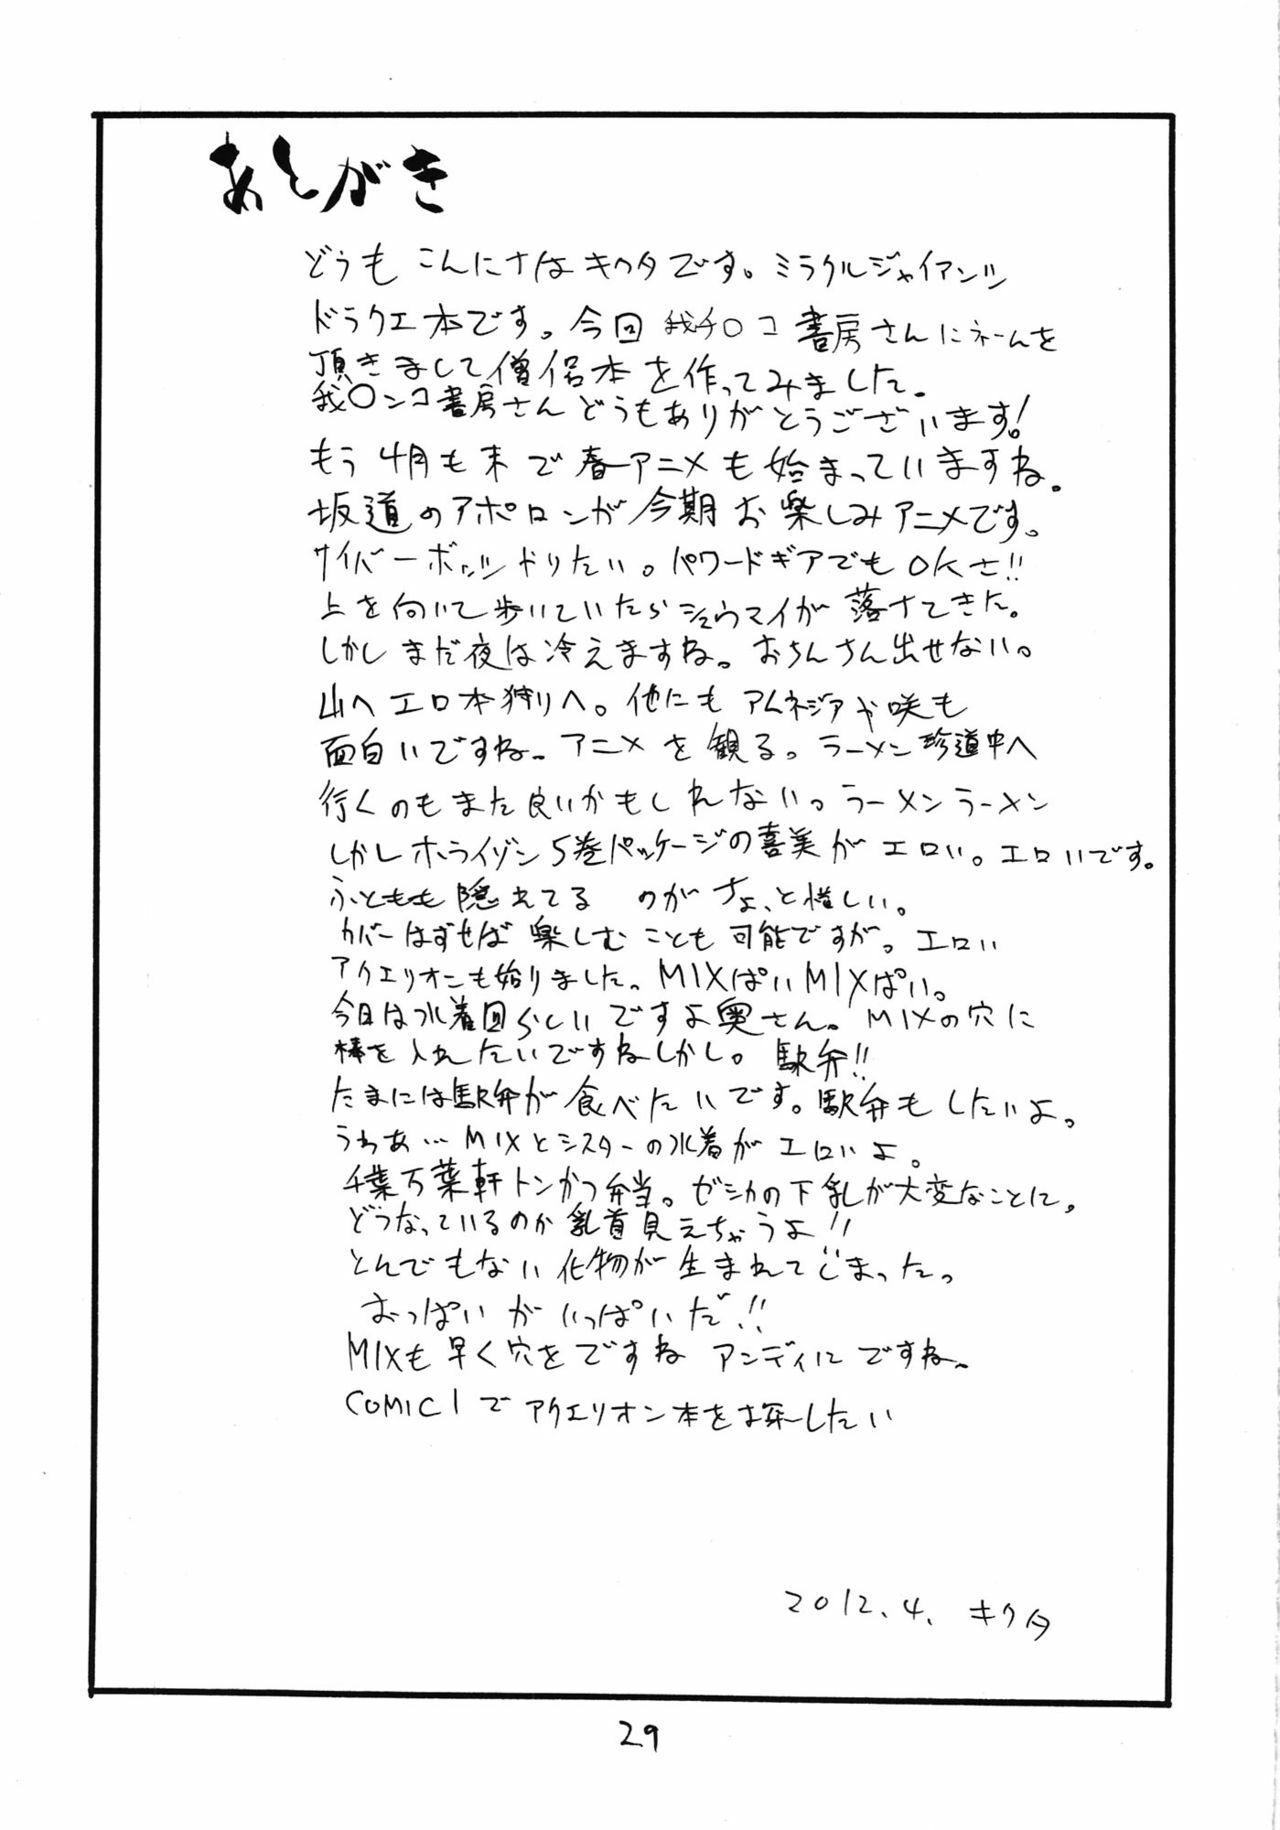 あとがき
どうも こんにちは キクタです。ミラクルジャイアンツ
ドラクエ本です。今回 我チ〇コ書房さんにネームを
頂きまして僧侶本を作ってみました。
我〇ンコ書房さんどうもありがとうございます!
もう 4月も末で春アニメも始まっていますね。
坂道のアポロンが今期お楽しみアニメです。
サイバーボッツ やりたい。パワードギアでもOKさ!!
上を向いて歩いていたらシュウマイが落ちてきた。
しかしまだ夜は冷えますね。おちんさん出せない。
山へエロ本狩りへ。他にも アムネジアや咲も
面白いですね。アニメを観る。ラーメン珍道中へ
行くのもまた良いかもしれない。ラーメンラーメン
しかしホライゾン5巻パッケージの喜美がエロい。エロいです。
ふともも隠れてる のがちょっと惜しい。
カバーはずせば楽しむことも可能ですが。エロい
アクエリオンも始りました。MIXぱいMIXぱい。
今日は水着回らしいですよ奥さん。MIXの穴に
棒を入れたいですねしかし。駅弁!!
たまには駅弁が食べたいです。駅弁もしたいよ。
うわあ…MIXとシスターの水着がエロいよ。
千葉万葉軒トンかつ弁当。ゼシカの下乳が大変なことに。
どうなっているのか乳首見えちゃうよ!!
とんでもない化物が生まれてしまった。
おっぱいがいっぱいだ!!
MIXも早く穴をですね アンディにですね。
COMIC1でアクエリオン本をお探ししたい
2012.4. キクタ
29